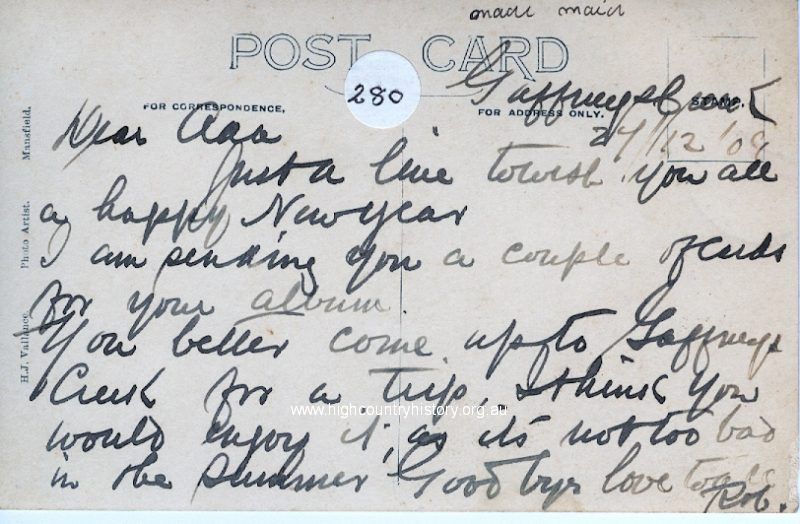 made maid
POST CARD
280
Gaffneys Creek
FOR CORRESPONDENCE,
FOR ADDRESS ONLY.
STAMP.
27/12/09
Dear Ada
Just a line to wish you all
a happy New Year
I am sending you a couple of cards
for your album.
You better come up to Gaffneys
Creek for a trip, I think you
would enjoy it, as its not too bad
in the summer Good bye love to all
Rob.
H.J. Vallance, Photo Artist. Mansfield.
www.highcountryhistory.org.au